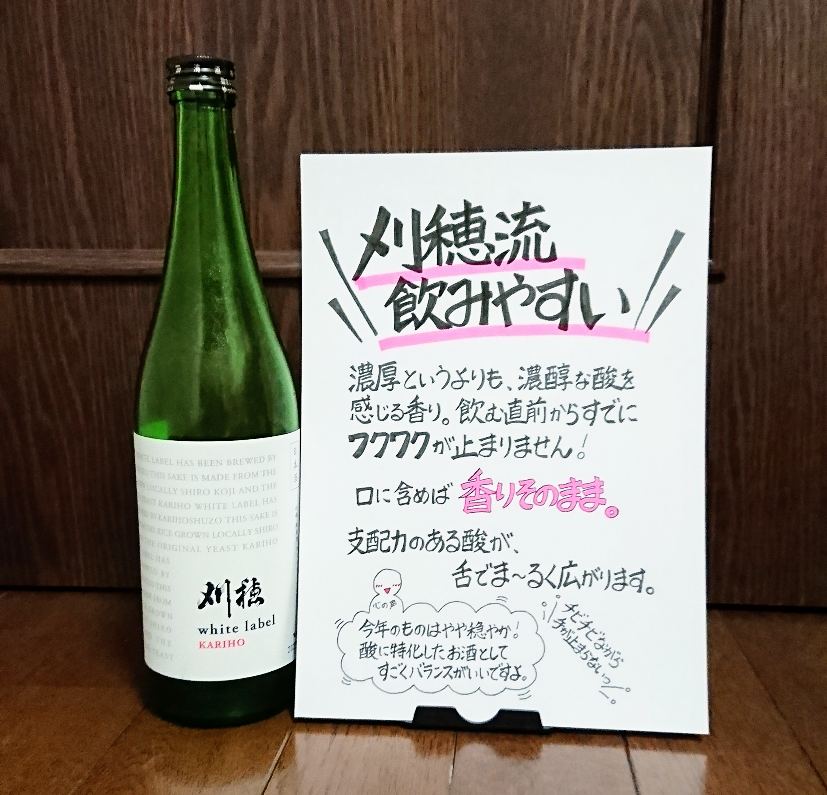 WHITE LABEL HAS BEEN BREWED BY
THIS SAKE IS MADE FROM THE
LOCALLY SHIRO KOJI AND THE
YEAST KARIHO WHITE LABEL HAS
BY KARIHOSHUZO THIS SAKE IS
RICE GROWN LOCALLY SHIRO
THE ORIGINAL YEAST KARIHO
刈穂
white label
KARIHO
刈穂流
飲みやすい
濃厚というよりも、濃醇な酸を
感じる香り。飲む直前からすでに
ワクワクが止まりません!
口に含めば 香りそのまま。
支配力のある酸が、
舌でま〜るく広がります。
心の声
今年のものはやや穏やか!
酸に特化したお酒として
すごくバランスがいいですよ。
チビチビながら
手が止まらないっ